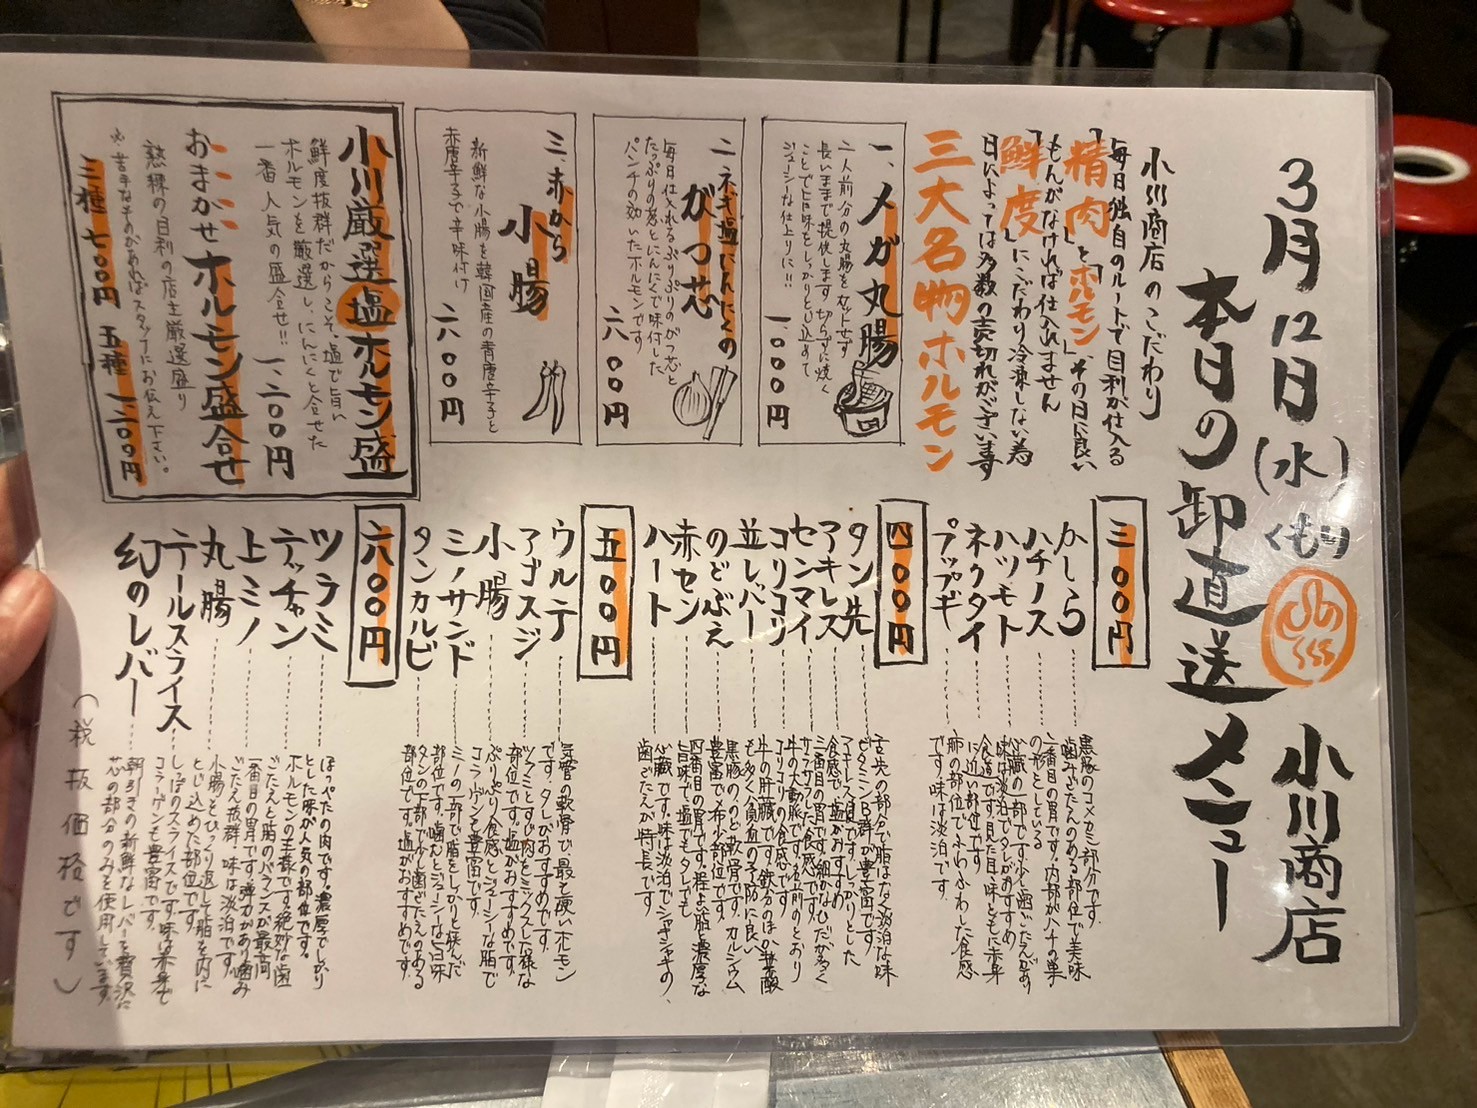 3月12日(水)くもり
小川商店
本日の卸直送メニュー
小川商店のこだわり
毎日独自のルートで目利が仕入る
「精肉」と「ホルモン」、その日に良い
もんがなければ仕入れません
「鮮度」にこだわり冷凍しない為
日によっては多数の売切れがございます
三大名物ホルモン
一、メガ丸腸
二人前分の丸腸をカットせず
長いままで提供します。切らずに焼く
ことで旨味をしっかりととじ込めて
ジューシーな仕上りに!!
一、〇〇〇円
二、ネギ塩にんにくの
がつ芯
毎日仕入れるぷりぷりのがつ芯と
たっぷりの葱とにんにくで味付した
パンチの効いたホルモンです
六〇〇円
三、赤から
小腸
新鮮な小腸を韓国産の青唐辛子と
赤唐辛子で辛味付け
六〇〇円
小川厳選塩ホルモン盛
鮮度抜群だからこそ、塩で旨い
ホルモンを厳選し、にんにくと合せた
一番人気の盛合せ!!
一、二〇〇円
おまかせホルモン盛合せ
熟練の目利の店主厳選盛り
※苦手なものがあればスタッフにお伝え下さい。
三種 七〇〇円 五種 一、二〇〇円
三〇〇円
かしら
黒豚のコメカミ部分です。
歯みごたえのある部位で美味
ハチノス
二番目の胃です。内部がハチの巣
の形をしている
ハツモト
心臓の一部です。少し歯ごたえがあり
味は淡泊でタレがおすすめ
ネクタイ
食道です。見た目、味ともに赤身
に近い部位です
プップギ
肺の部位でふわふわした食感
です。味は淡泊です。
四〇〇円
タン先
舌先の部分で脂はなく淡泊な味
ビタミンB群が豊富です
アキレス
アキレス腱です。しっかりとした
食感で、塩がおすすめ
センマイ
三番目の胃です。細かなひだが多く
サラサラした食感です。
コリコリ
牛の大動脈です。名前のとおり
コリコリの食感です。
並レバー
牛の肝臓です。鉄分のほか葉酸
も多く貧血の予防に良い
のどぶえ
黒豚の、のど軟骨です。カルシウム
豊富で希少部位です。
赤セン
四番目の胃です。程よい脂と濃厚な
旨味で、塩でもタレでも
ハート
心臓です。味は淡泊でシャキシャキの、
歯ごたえが特長です。
五〇〇円
ウルテ
気管の軟骨で、最も硬いホルモン
です。タレがおすすめです。
アゴスジ
ツラミとすじ肉をミックスした様な
部位です。塩がおすすめです。
小腸
ぷりっぷり食感とジューシーな脂で
コラーゲンも豊富です。
ミノサンド
ミノの一部で脂をしっかりと挟んだ
部位です。噛むとジューシーな旨味
タンカルビ
タンの下部で少し歯ごたえのある
部位です。塩がおすすめです。
六〇〇円
ツラミ
ほっぺたの肉です。濃厚でしっかり
とした味が人気の部位です。
テッチャン
ホルモンの王様です。絶妙な歯
ごたえと脂のバランスが最高
上ミノ
一番目の胃です。弾力があり噛み
ごたえ抜群、味は淡泊です。
丸腸
小腸をひっくり返して脂を内に
とじ込めた部位です。
テールスライス
しっぽのスライスです。味は赤身で
コラーゲンも豊富です。
幻のレバー
朝引きの新鮮なレバーを贅沢に
芯の部分のみを使用しています。
(税抜価格です)